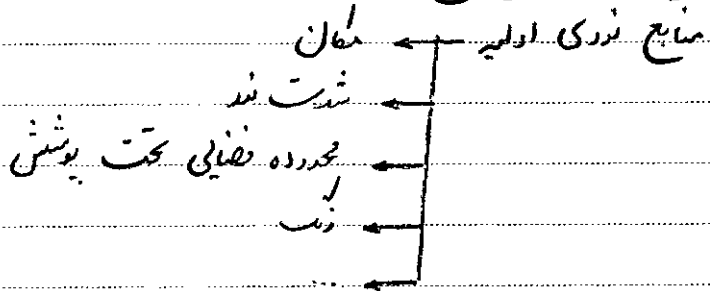 منابع نوری اولیه ← مکان
← شدت نور
← محدوده فضایی تحت پوشش
← رنگ
← ...